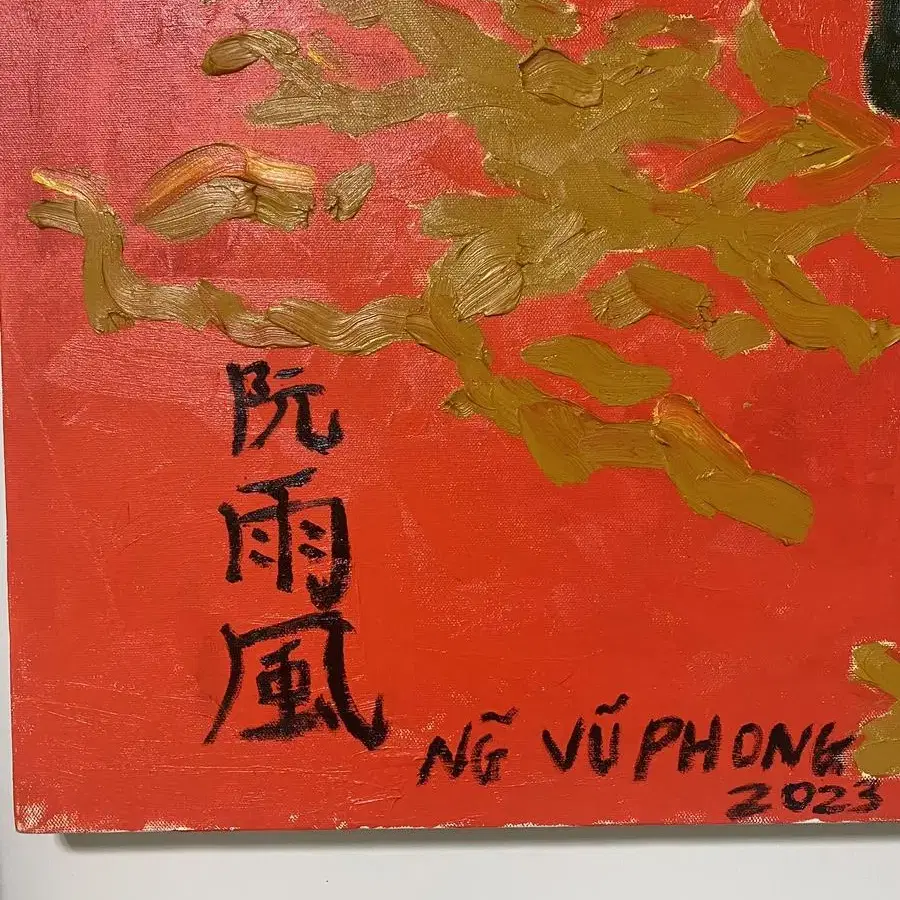 阮雨風
NG̃ VŨ PHONG
2023